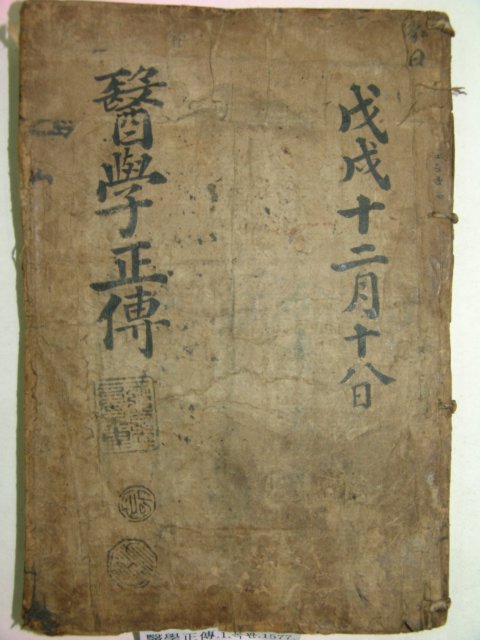 戊戌十二月十八日
醫學正傳
醫學正傳.1.목판.1577.